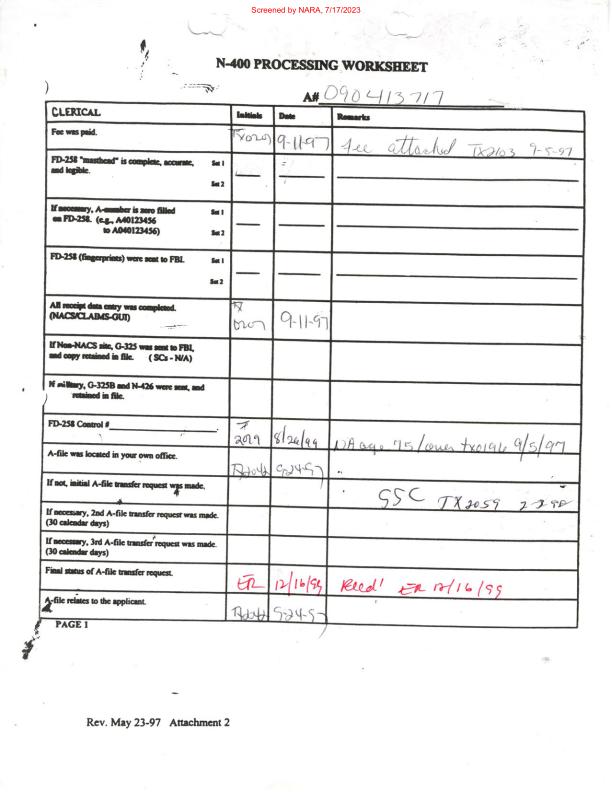 Screened by NARA, 7/17/2023
N-400 PROCESSING WORKSHEET
A# 090413717
CLERICAL Initials Date Remarks
Fee was paid. TX0207 9-11-97 fee attached TX2103 9-5-97
FD-258 "masthead" is complete, accurate, Set 1
and legible.
Set 2
If necessary, A-number is zero filled Set 1
on FD-258. (e.g., A40123456
to A040123456) Set 2
FD-258 (fingerprints) were sent to FBI. Set 1
Set 2
All receipt data entry was completed. TX
(NACS/CLAIMS-GUI) 0207 9-11-97
If Non-NACS site, G-325 was sent to FBI,
and copy retained in file. (SCs - N/A)
If military, G-325B and N-426 were sent, and
retained in file.
FD-258 Control # 2029 8/26/99 NA age 75/over tx0196 9/5/97
A-file was located in your own office. 9-24-97
If not, initial A-file transfer request was made. GSC TX2059
If necessary, 2nd A-file transfer request was made.
(30 calendar days)
If necessary, 3rd A-file transfer request was made.
(30 calendar days)
Final status of A-file transfer request. ER 12/16/99 Recd! ER 12/16/99
A-file relates to the applicant. 9-24-97
PAGE 1
Rev. May 23-97 Attachment 2